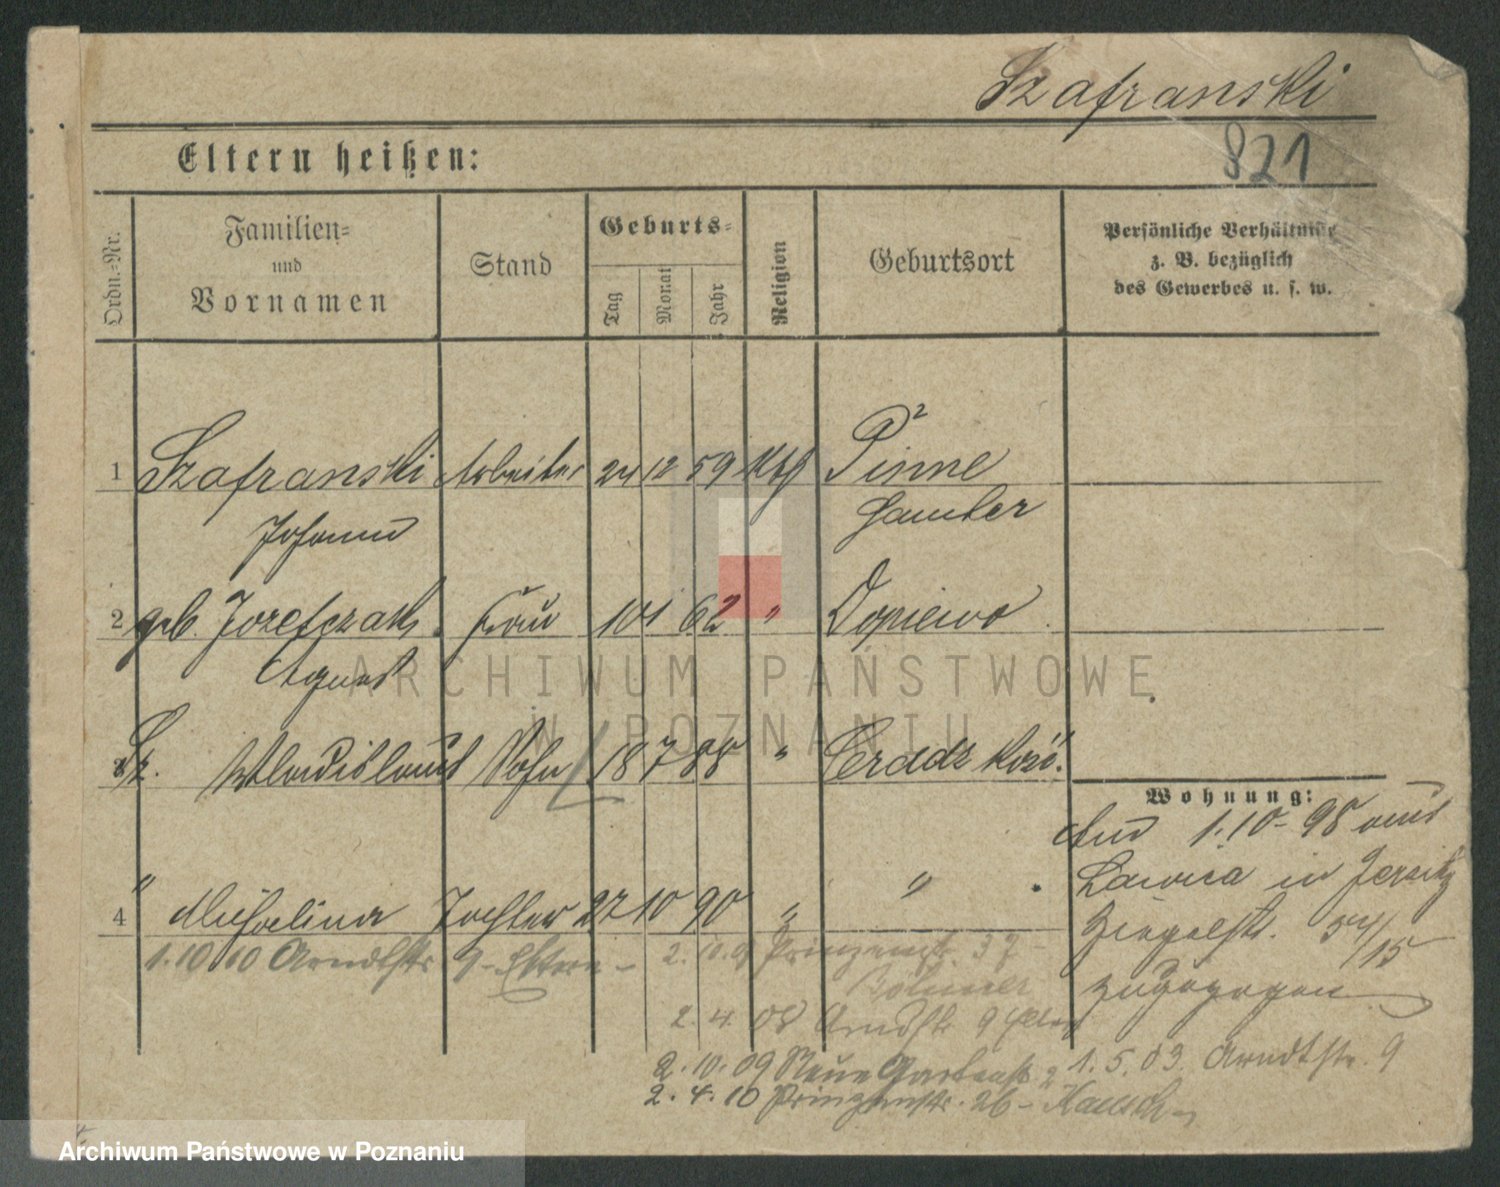 Szafranski
821
Eltern heißen:
Ordn.=Nr.
Familien=
und
Vornamen
Stand
Geburts=
Tag
Monat
Jahr
Religion
Geburtsort
Persönliche Verhältnisse
z. B. bezüglich
des Gewerbes u. s. w.
1 Szafranski Arbeiter 24 12 59 Kth Pinne
Johann Samter
2 geb. Jozefczak Frau 10 1 62 " Dopiewo
Agnes
Sz. Wladislaus Sohn 18 7 88 "
Wohnung:
1.10-98 aus
4 " Michalina Tochter 27 10 90 " "
Lawica in Jersitz
Ziegelstr. 54/15
zugezogen
1.10 10 Arndtstr. 9 - Eltern -
2.10.0 Prinzenstr. 37 -
2.4. 08 Arndtstr 9
2.10.09 Neue Gartenstr 2
1.5.03. Arndtstr. 9
2.4.10 Prinzenstr. 26 -
ARCHIWUM PAŃSTWOWE
W POZNANIU
Archiwum Państwowe w Poznaniu